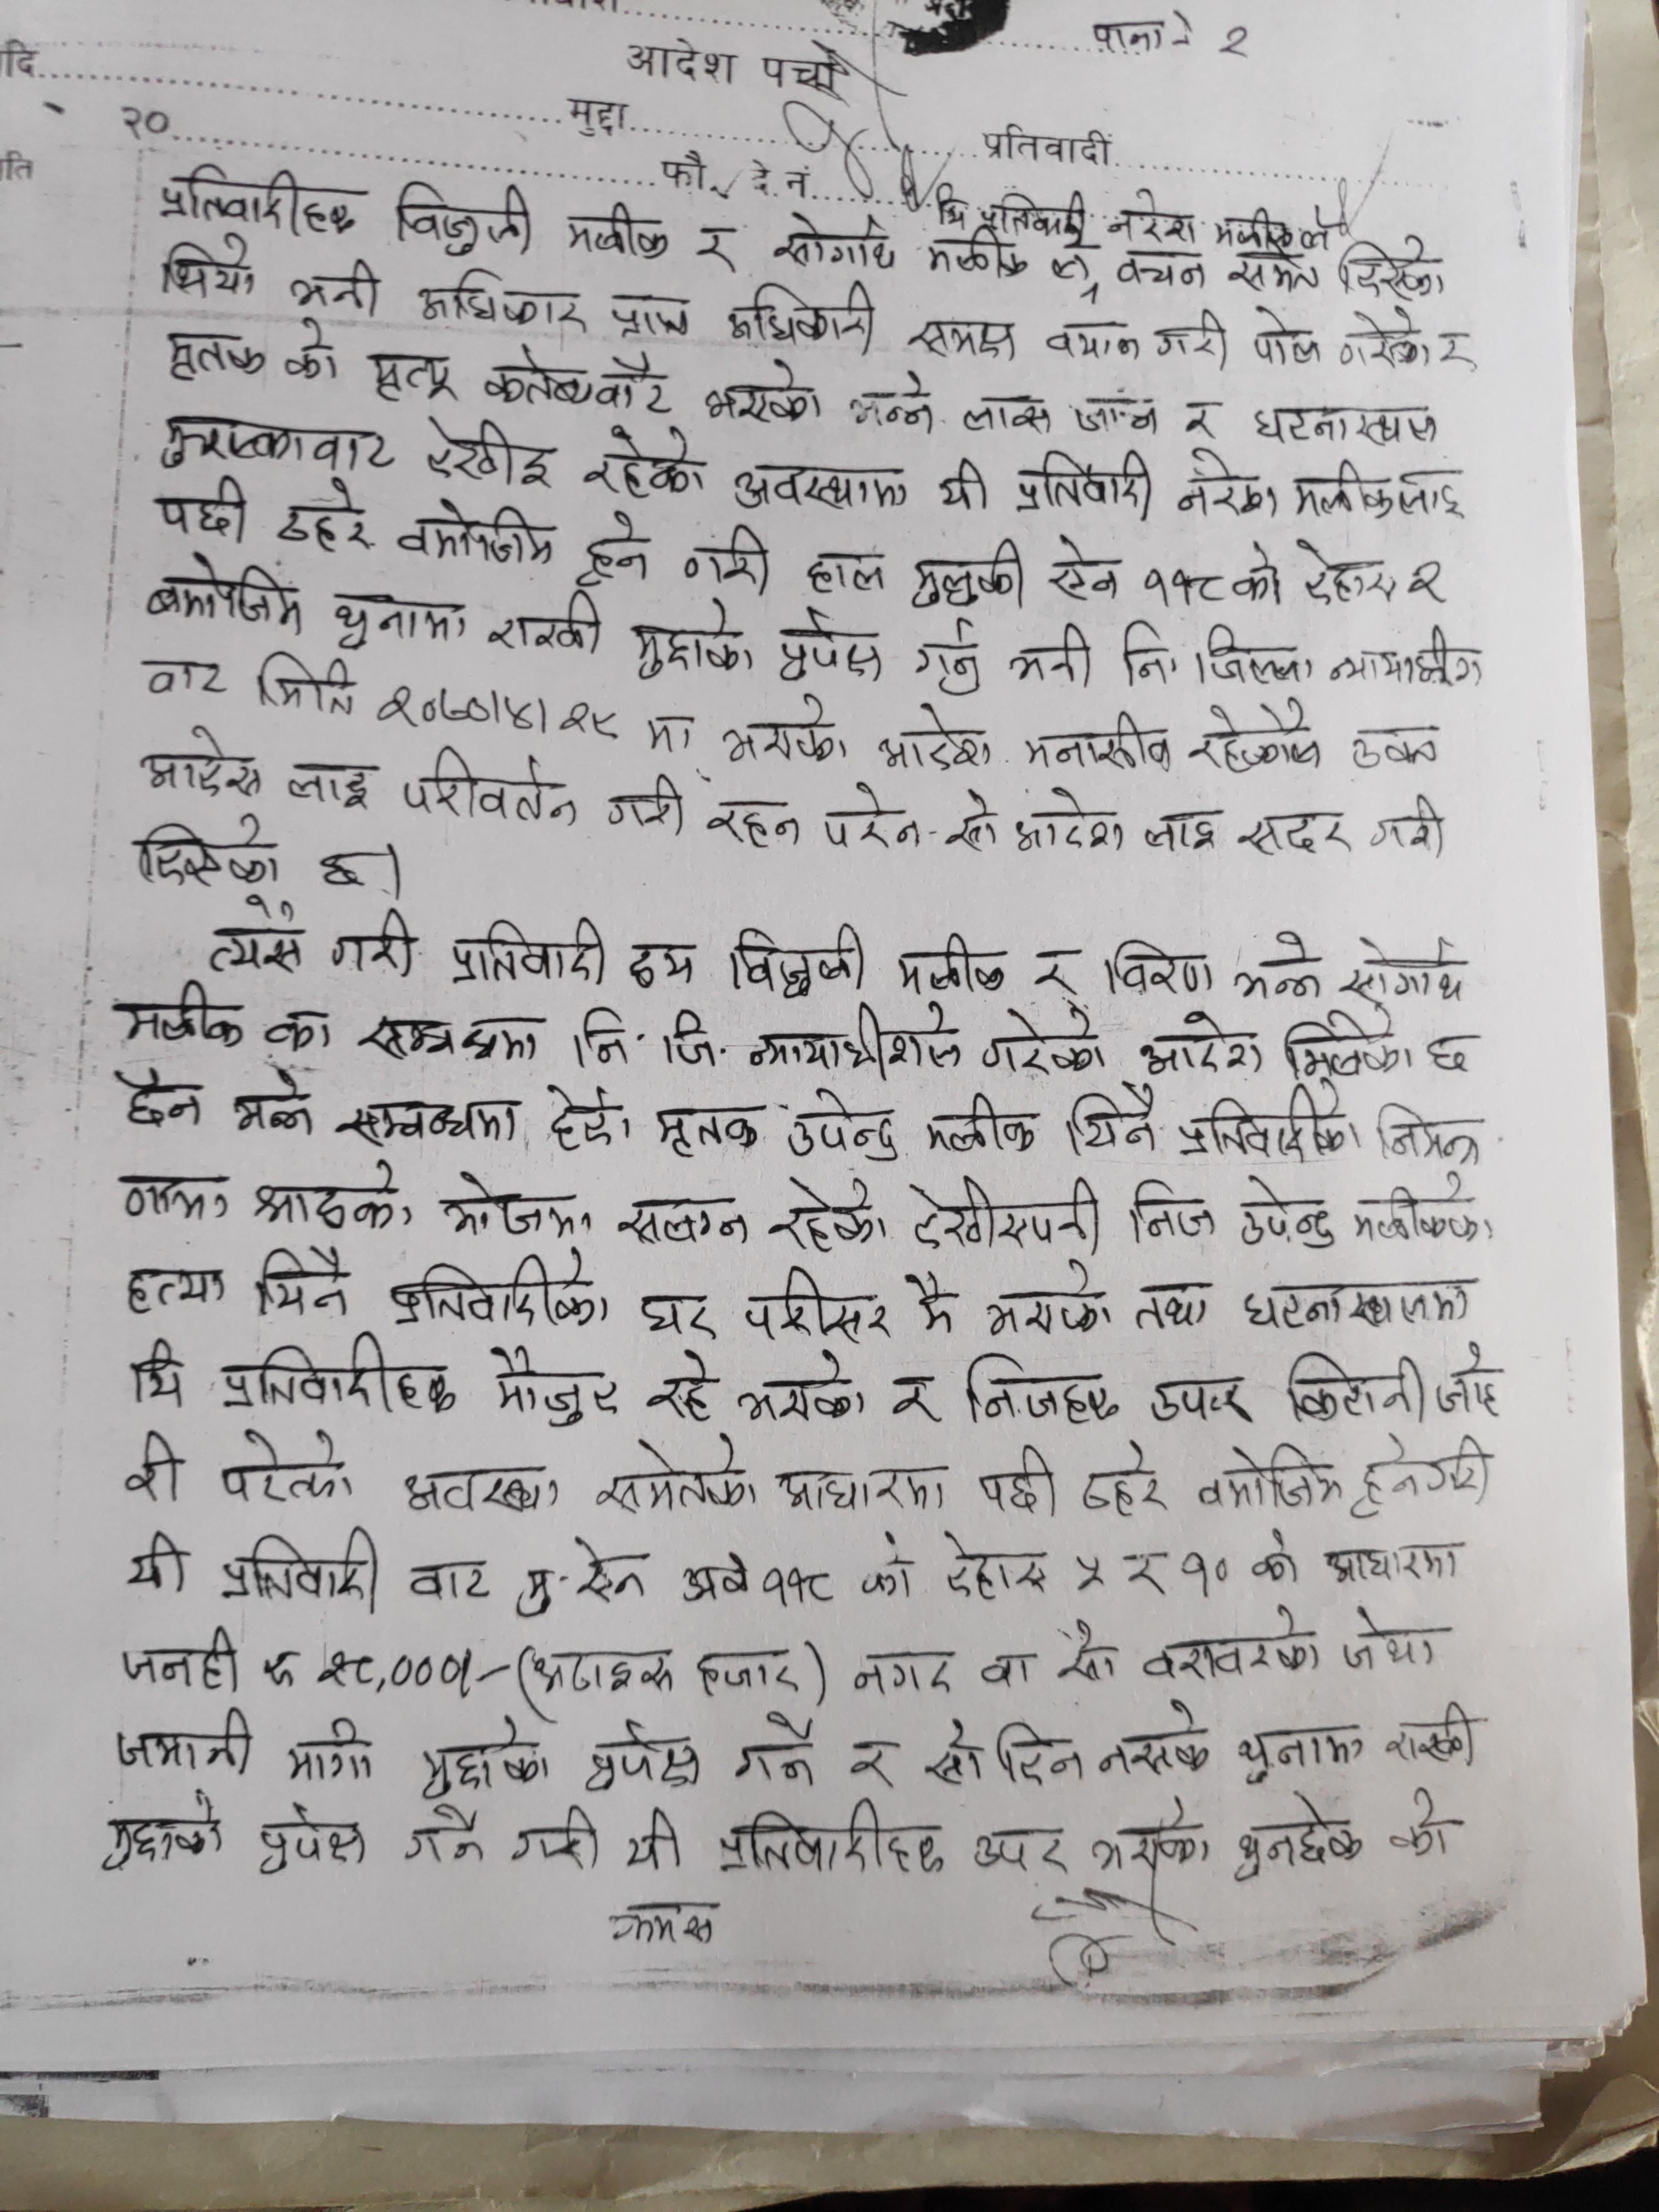 पाना नं २
आदेश पर्चा
दि
मुद्दा प्रतिवादी
२० फौ. दे. नं.
ति
यि प्रतिवादी नरेश मलीकले
प्रतिवादीहरु विजुली मलीक र सोगार्थ मलीक ले वचन समेत दिएका
थियो भनी अधिकार प्राप्त अधिकारी समक्ष वयान गरी पोल गरेको र
मृतक को मृत्यु कर्तब्यवाट भएको भन्ने लास जाँच र घटनास्थल
मुचुल्कावाट देखीइ रहेको अवस्थामा यी प्रतिवादी नरेश मलीकलाइ
पछी ठहरे वमोजिम हुने गरी हाल मुलुकी ऐन ११८ को देहाय २
बमोजिम थुनामा राखी मुद्दाको पुर्पक्ष गर्नु भनी नि. जिल्ला न्यायाधीश
वाट मिति २०७०।४।२९ मा भएको आदेश मनासीव रहेकोले उक्त
आदेस लाइ परीवर्तन गरी रहन परेन सो आदेश लाइ सदर गरी
दिएको छ।
त्यसै गरी प्रतिवादी द्वय विजुली मलीक र विरेण भन्ने सोगार्थ
मलीक का सम्बन्धमा नि. जि. न्यायाधीशले गरेको आदेश मिलेको छ
छैन भन्ने सम्वन्धमा हेर्दा मृतक उपेन्द्र मलीक यिनै प्रतिवादीका निमन्त्र
णामा आएको भोजमा संलग्न रहेको देखीएपनी निज उपेन्द्र मलीकको
हत्या यिनै प्रतिवादीको घर परीसर मै भएको तथा घटनास्थलमा
यि प्रतिवादीहरु मौजुद रहे भएको र निजहरु उपर किटानी जाहे
री परेको अवस्था समेतको आधारमा पछी ठहरे वमोजिम हुनेगरी
यी प्रतिवादी वाट मु. ऐन अवं ११८ को देहाय ५ र १० को आधारमा
जनही रु २८,०००।- (अठाइस हजार) नगद वा सो वरावरको जेथा
जमानी मागी मुद्दाको पुर्पक्ष गर्ने र सो दिन नसके थुनामा राखी
मुद्दाको पुर्पक्ष गर्ने गरी यी प्रतिवादीहरु उपर भएको थुनछेक को
क्रमस